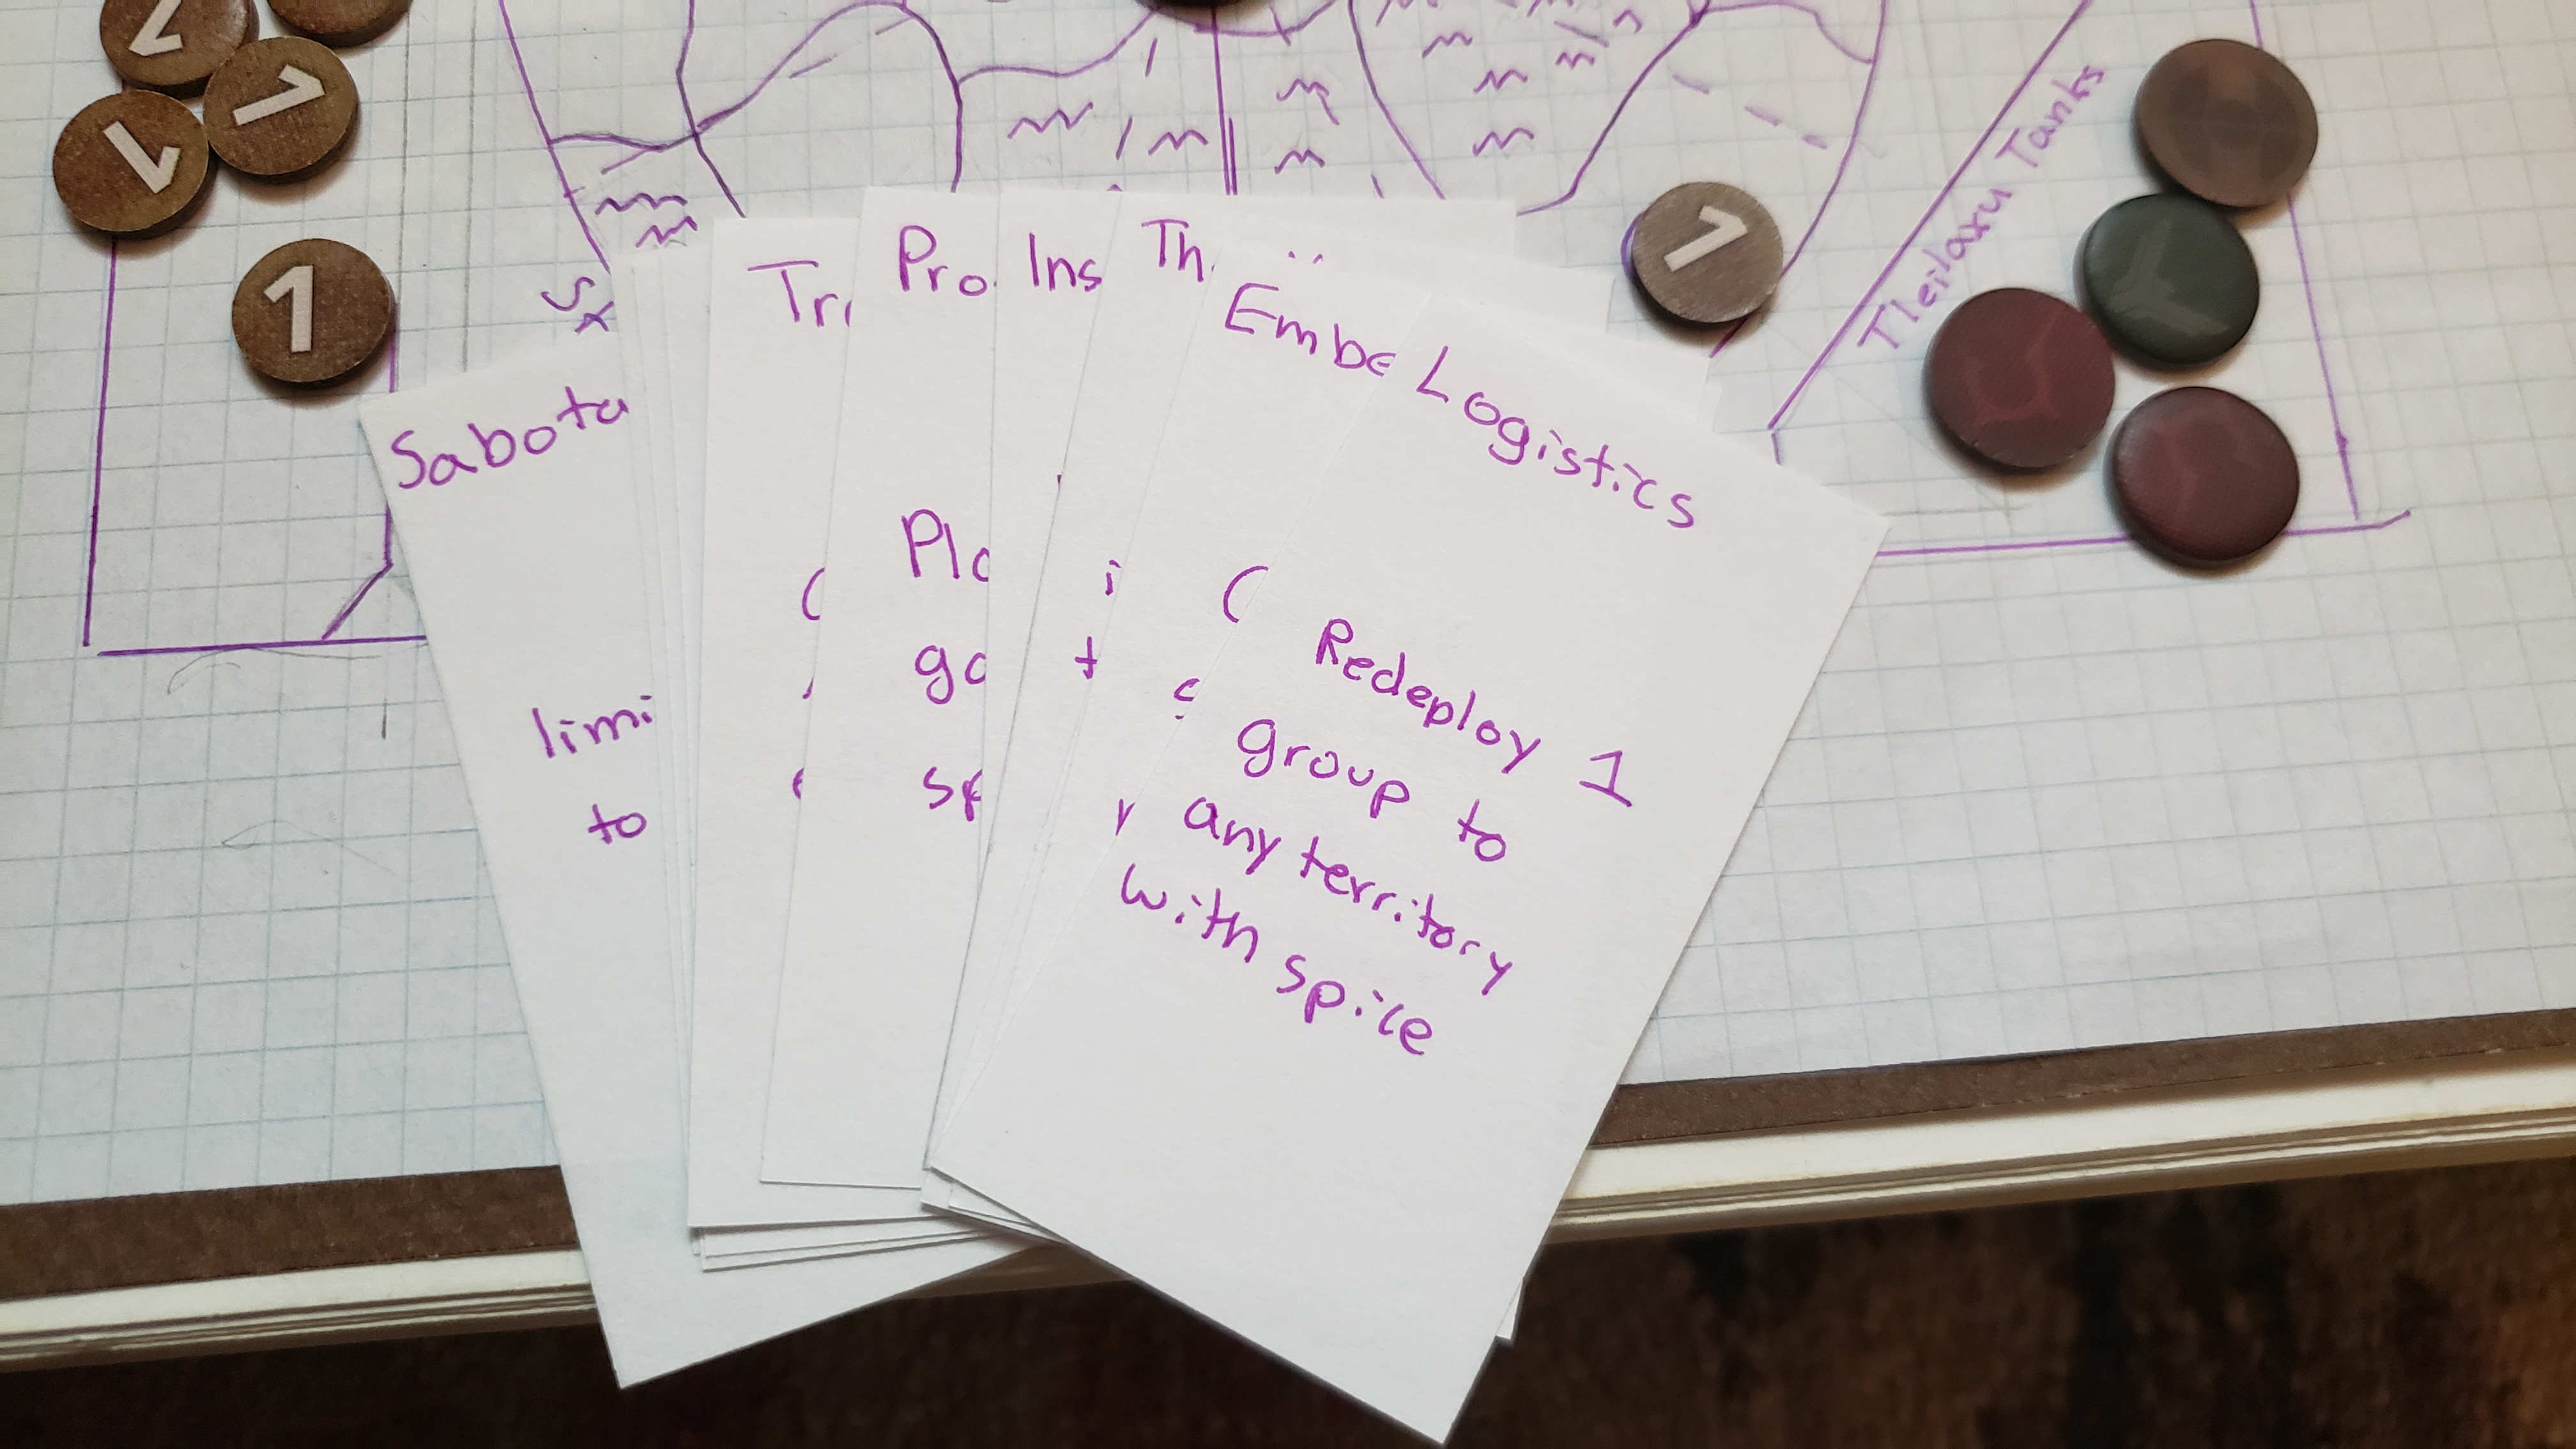 1
1
1
1
1
Tleilaxu Tanks
Sabota
limi
to
Tr
Pro
Pla
go
sp
Ins
i
t
Th
Embe
Logistics
Redeploy 1
group to
any territory
with spice